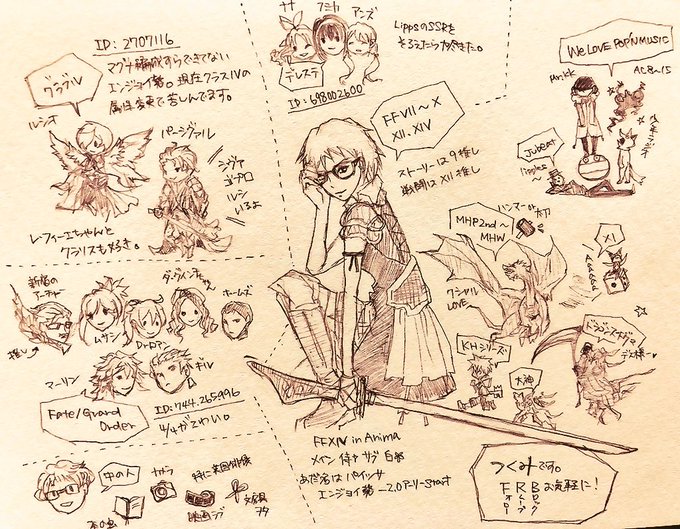 ID: 2707116
グラブル
マグナ編成すらできてない
エンジョイ勢。現在クラスⅣの
属性変更で苦しんでます。
ルシオ
パーシヴァル
シヴァ
ゴブロ
ルシ
いるよ
レ・フィーエちゃんと
クラリスも好き。
ナナ
フミカ
アンズ
LippsのSSRを
デレステ
ID: 698002600
We LOVE POP'N MUSIC
AC8~15
jubeat
ripples
~
FFVII~X
XII, XIV
ストーリーは9推し
戦闘はXII推し
ハンマー
MHP2nd~
MHW
クシャル
LOVE~
XI
KHシリーズ
大神
ドラゴンズドグマ
新宿の
アーチャー
推し
ムサシ
Drロマン
ダ・ヴィンチちゃん
ホームズ
マーリン
ギル
Fate/Grand
Order
ID: 744,265,996
中の人
カメラ
映画
文房具
ヲタ
本の虫
FFXIV in Anima
メイン 侍 サブ 白
あだ名はパイッサ
エンジョイ勢 ー2.0アーリーstart
つくみです。
F R B お気軽に!
フォロー
リムーブ
ブロック